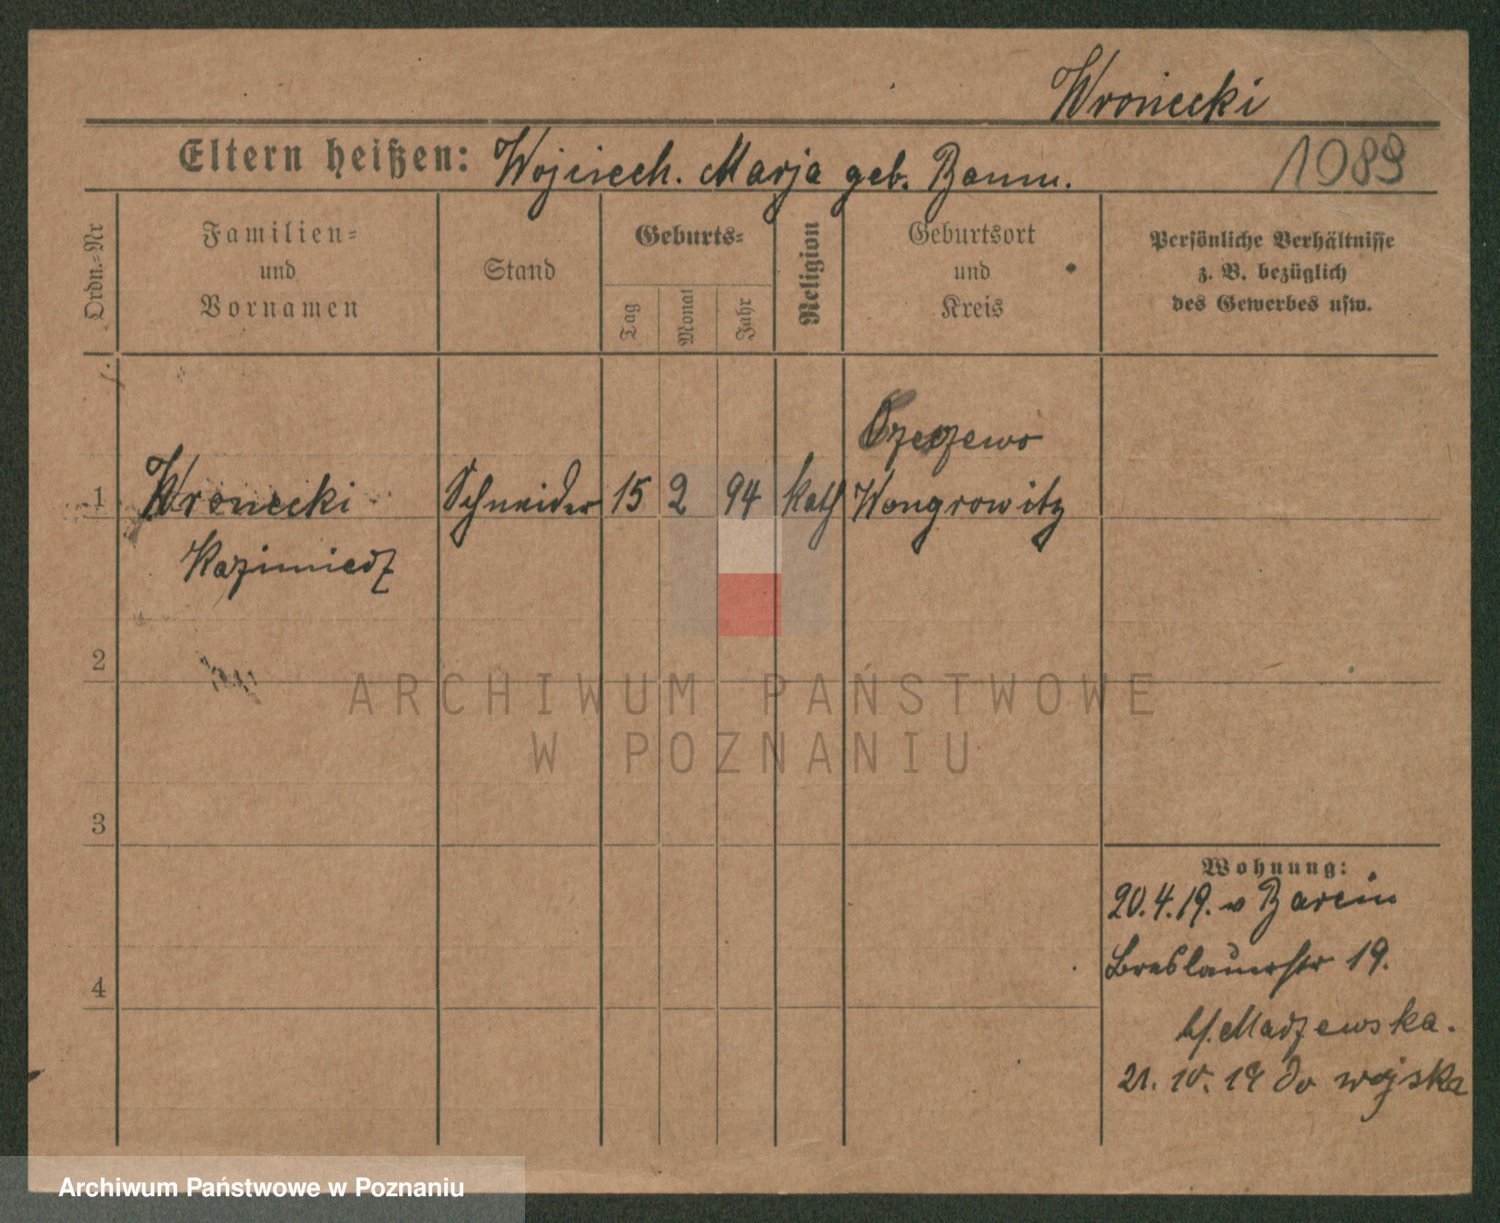 Wroniecki
Eltern heißen: Wojciech. Marja geb. Baum. 1089
Ordn.-Nr
Familien-
und
Vornamen
Stand
Geburts-
Tag
Monat
Jahr
Religion
Geburtsort
und
Kreis
Persönliche Verhältnisse
z. B. bezüglich
des Gewerbes usw.
1 Wronecki Schneider 15 2 94 kath Wongrowitz
Kazimierz
2
3
4
Wohnung:
20.4.19. v Barcin
Breslauerstr 19.
21. 10. 19 do wojska
ARCHIWUM PAŃSTWOWE
W POZNANIU
Archiwum Państwowe w Poznaniu